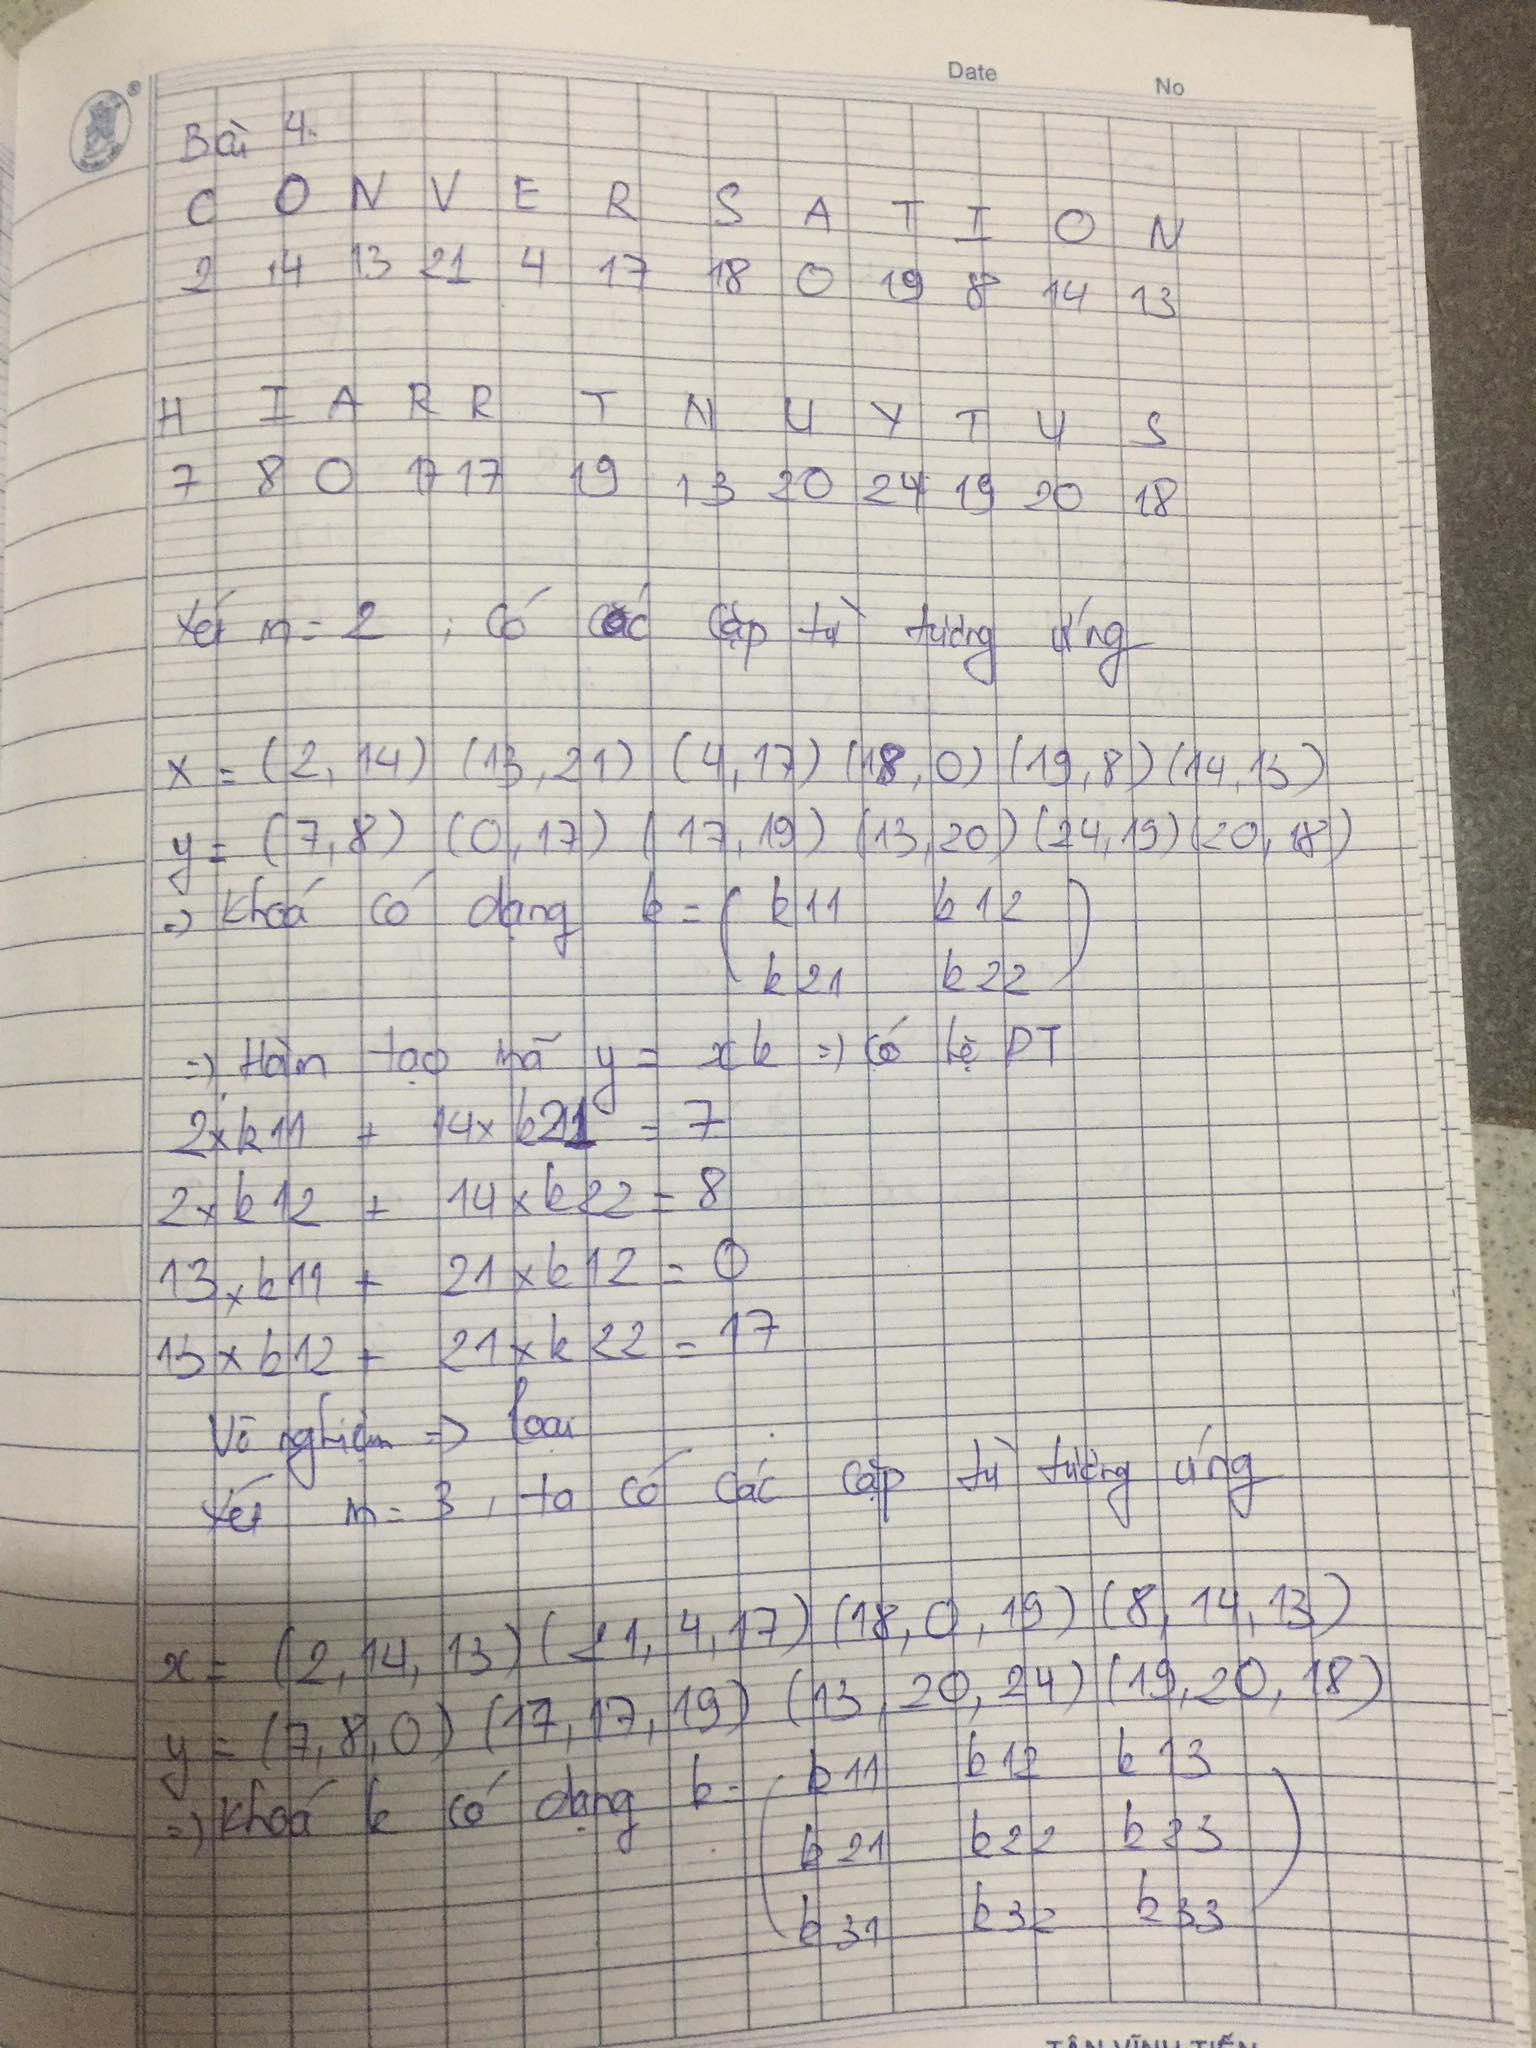 Date No
Bài 4.
C O N V E R S A T I O N
2 14 13 21 4 17 18 0 19 8 14 13
H I A R R T N U Y T U S
7 8 0 17 17 19 13 20 24 19 20 18
Xét m = 2 , có các cặp từ tương ứng
x = (2, 14) (13, 21) (4, 17) (18, 0) (19, 8) (14, 13)
y = (7, 8) (0, 17) (17, 19) (13, 20) (24, 19) (20, 18)
=> Khoá có dạng k = ( k11 k12
k21 k22 )
=> Hàm tạo mã y = xk => có hệ PT
2 x k11 + 14 x k21 = 7
2 x k12 + 14 x k22 = 8
13 x k11 + 21 x k12 = 0
13 x k12 + 21 x k22 = 17
Vô nghiệm => loại
Xét m = 3 , ta có các cặp từ tương ứng
x = (2, 14, 13) (21, 4, 17) (18, 0, 19) (8, 14, 13)
y = (7, 8, 0) (17, 17, 19) (13, 20, 24) (19, 20, 18)
=> Khoá k có dạng k = ( k11 k12 k13
k21 k22 k23
k31 k32 k33 )
TÂN VĨNH TIẾN